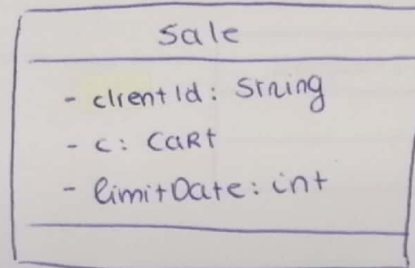 Sale
- clientId: String
- c: Cart
- limitDate: int